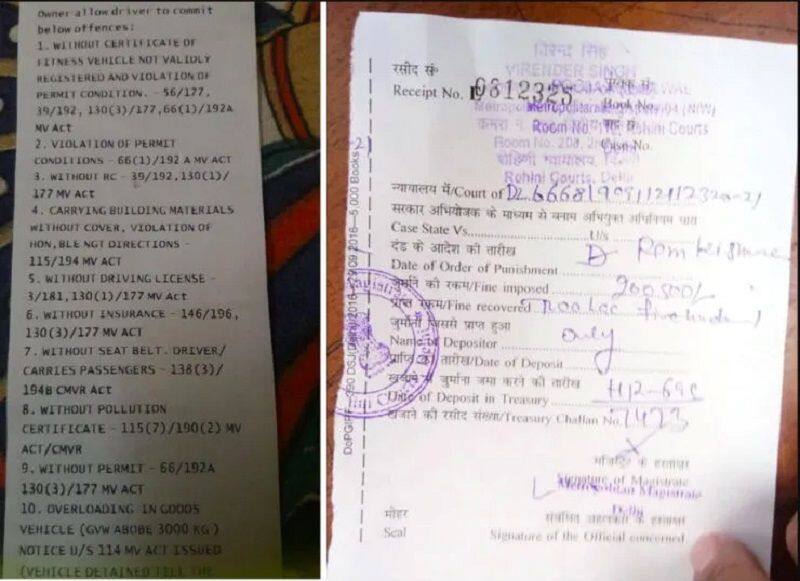 Owner allow driver to commit
below offences:
1. WITHOUT CERTIFICATE OF
FITNESS VEHICLE NOT VALIDLY
REGISTERED AND VIOLATION OF
PERMIT CONDITION. - 56/177,
39/192, 130(3)/177,66(1)/192A
MV ACT
2. VIOLATION OF PERMIT
CONDITIONS - 66(1)/192 A MV ACT
3. WITHOUT RC - 39/192,130(1)/
177 MV ACT
4. CARRYING BUILDING MATERIALS
WITHOUT COVER, VIOLATION OF
HON,BLE NGT DIRECTIONS -
115/194 MV ACT
5. WITHOUT DRIVING LICENSE -
3/181,130(1)/177 MV Act
6. WITHOUT INSURANCE - 146/196,
130(3)/177 MV ACT
7. WITHOUT SEAT BELT. DRIVER/
CARRIES PASSENGERS - 138(3)/
194B CMVR Act
8. WITHOUT POLLUTION
CERTIFICATE - 115(7)/190(2) MV
ACT/CMVR
9. WITHOUT PERMIT - 66/192A
130(3)/177 MV ACT
10. OVERLOADING IN GOODS
VEHICLE (GVW ABOBE 3000 KG)
NOTICE U/S 114 MV ACT ISSUED
(VEHICLE DETAINED TILL THE
विरेन्द्र सिंह
VIRENDER SINGH
रसीद सं०
Receipt No. 0812325
Book No.
Room No. Rohini Courts
Case No.
Room No. 208,
रोहिणी न्यायालय,
Rohini Courts, Delhi
न्यायालय में/Court of
सरकार अभियोजक के माध्यम से बनाम अभियुक्त अधिनियम धारा
Case State Vs. U/s
दंड के आदेश की तारीख
Date of Order of Punishment
जुर्माने की रकम/Fine imposed 200500/-
प्राप्त रकम/Fine recovered Two Lac five hundred
जुर्माना जिससे प्राप्त हुआ only
Name of Depositor
प्राप्ति की तारीख/Date of Deposit
खजाने में जुर्माना जमा करने की तारीख
Date of Deposit in Treasury
खजाने की रसीद संख्या/Treasury Challan No.
मजिस्ट्रेट के हस्ताक्षर
Signature of Magistrate
Metropolitan Magistrate
Delhi
मोहर
संबंधित अहलकार के हस्ताक्षर
Seal Signature of the Official concerned